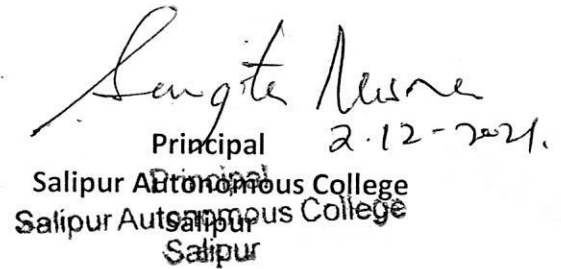 Sangita
2.12-2021.
Principal
Salipur Autonomous College
Salipur
Principal
Salipur Autonomous College
Salipur